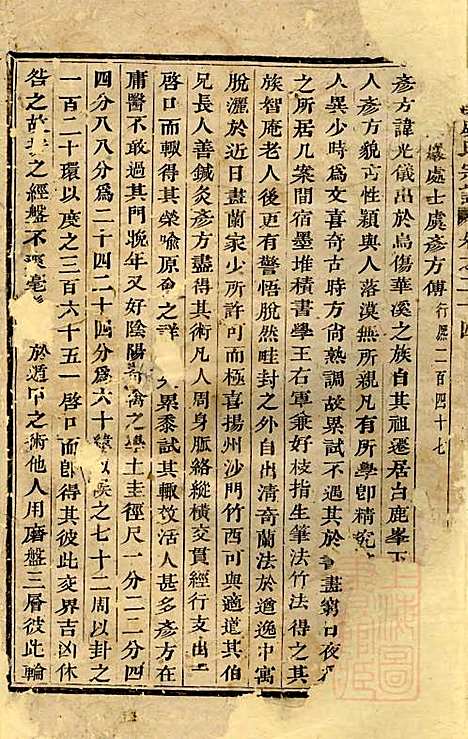 處士虞彥方傅 行慝二百四十七
彥方諱光儀出於烏傷華溪之族自其祖遷居白鹿峯下
人彥方貌古性穎與人落漠無所親凡有所學卽精究
人異少時爲文喜奇古時方尚熟調故累試不遇其於畫窮日夜
之所居几案間宿墨堆積書學王右軍兼好枝指生筆法竹法得
族智庵老人老更有警悟脫然畦封之外自出淸奇蘭法於遒逸中寓
脫灑於近日畫蘭家少所許可而極喜揚州沙門竹西可與適道其伯
兄長人善鍼灸彥方盡得其術凡人周身脈絡縱橫交貫經行支出
啓口而輙得其榮喻原之詳 累黍試其輙效活人甚多彥方在
庸醫不敢過其門晚年又好陰陽之學土圭徑尺一分二二分四
四分八八分爲二十四二十四分爲六十之七十二周以卦之
一百二十環以度之三百六十五一啓口而卽得其彼此交界吉凶休
咎之故 之經盤不毫 於遁甲之術他人用磨盤三層彼此輪